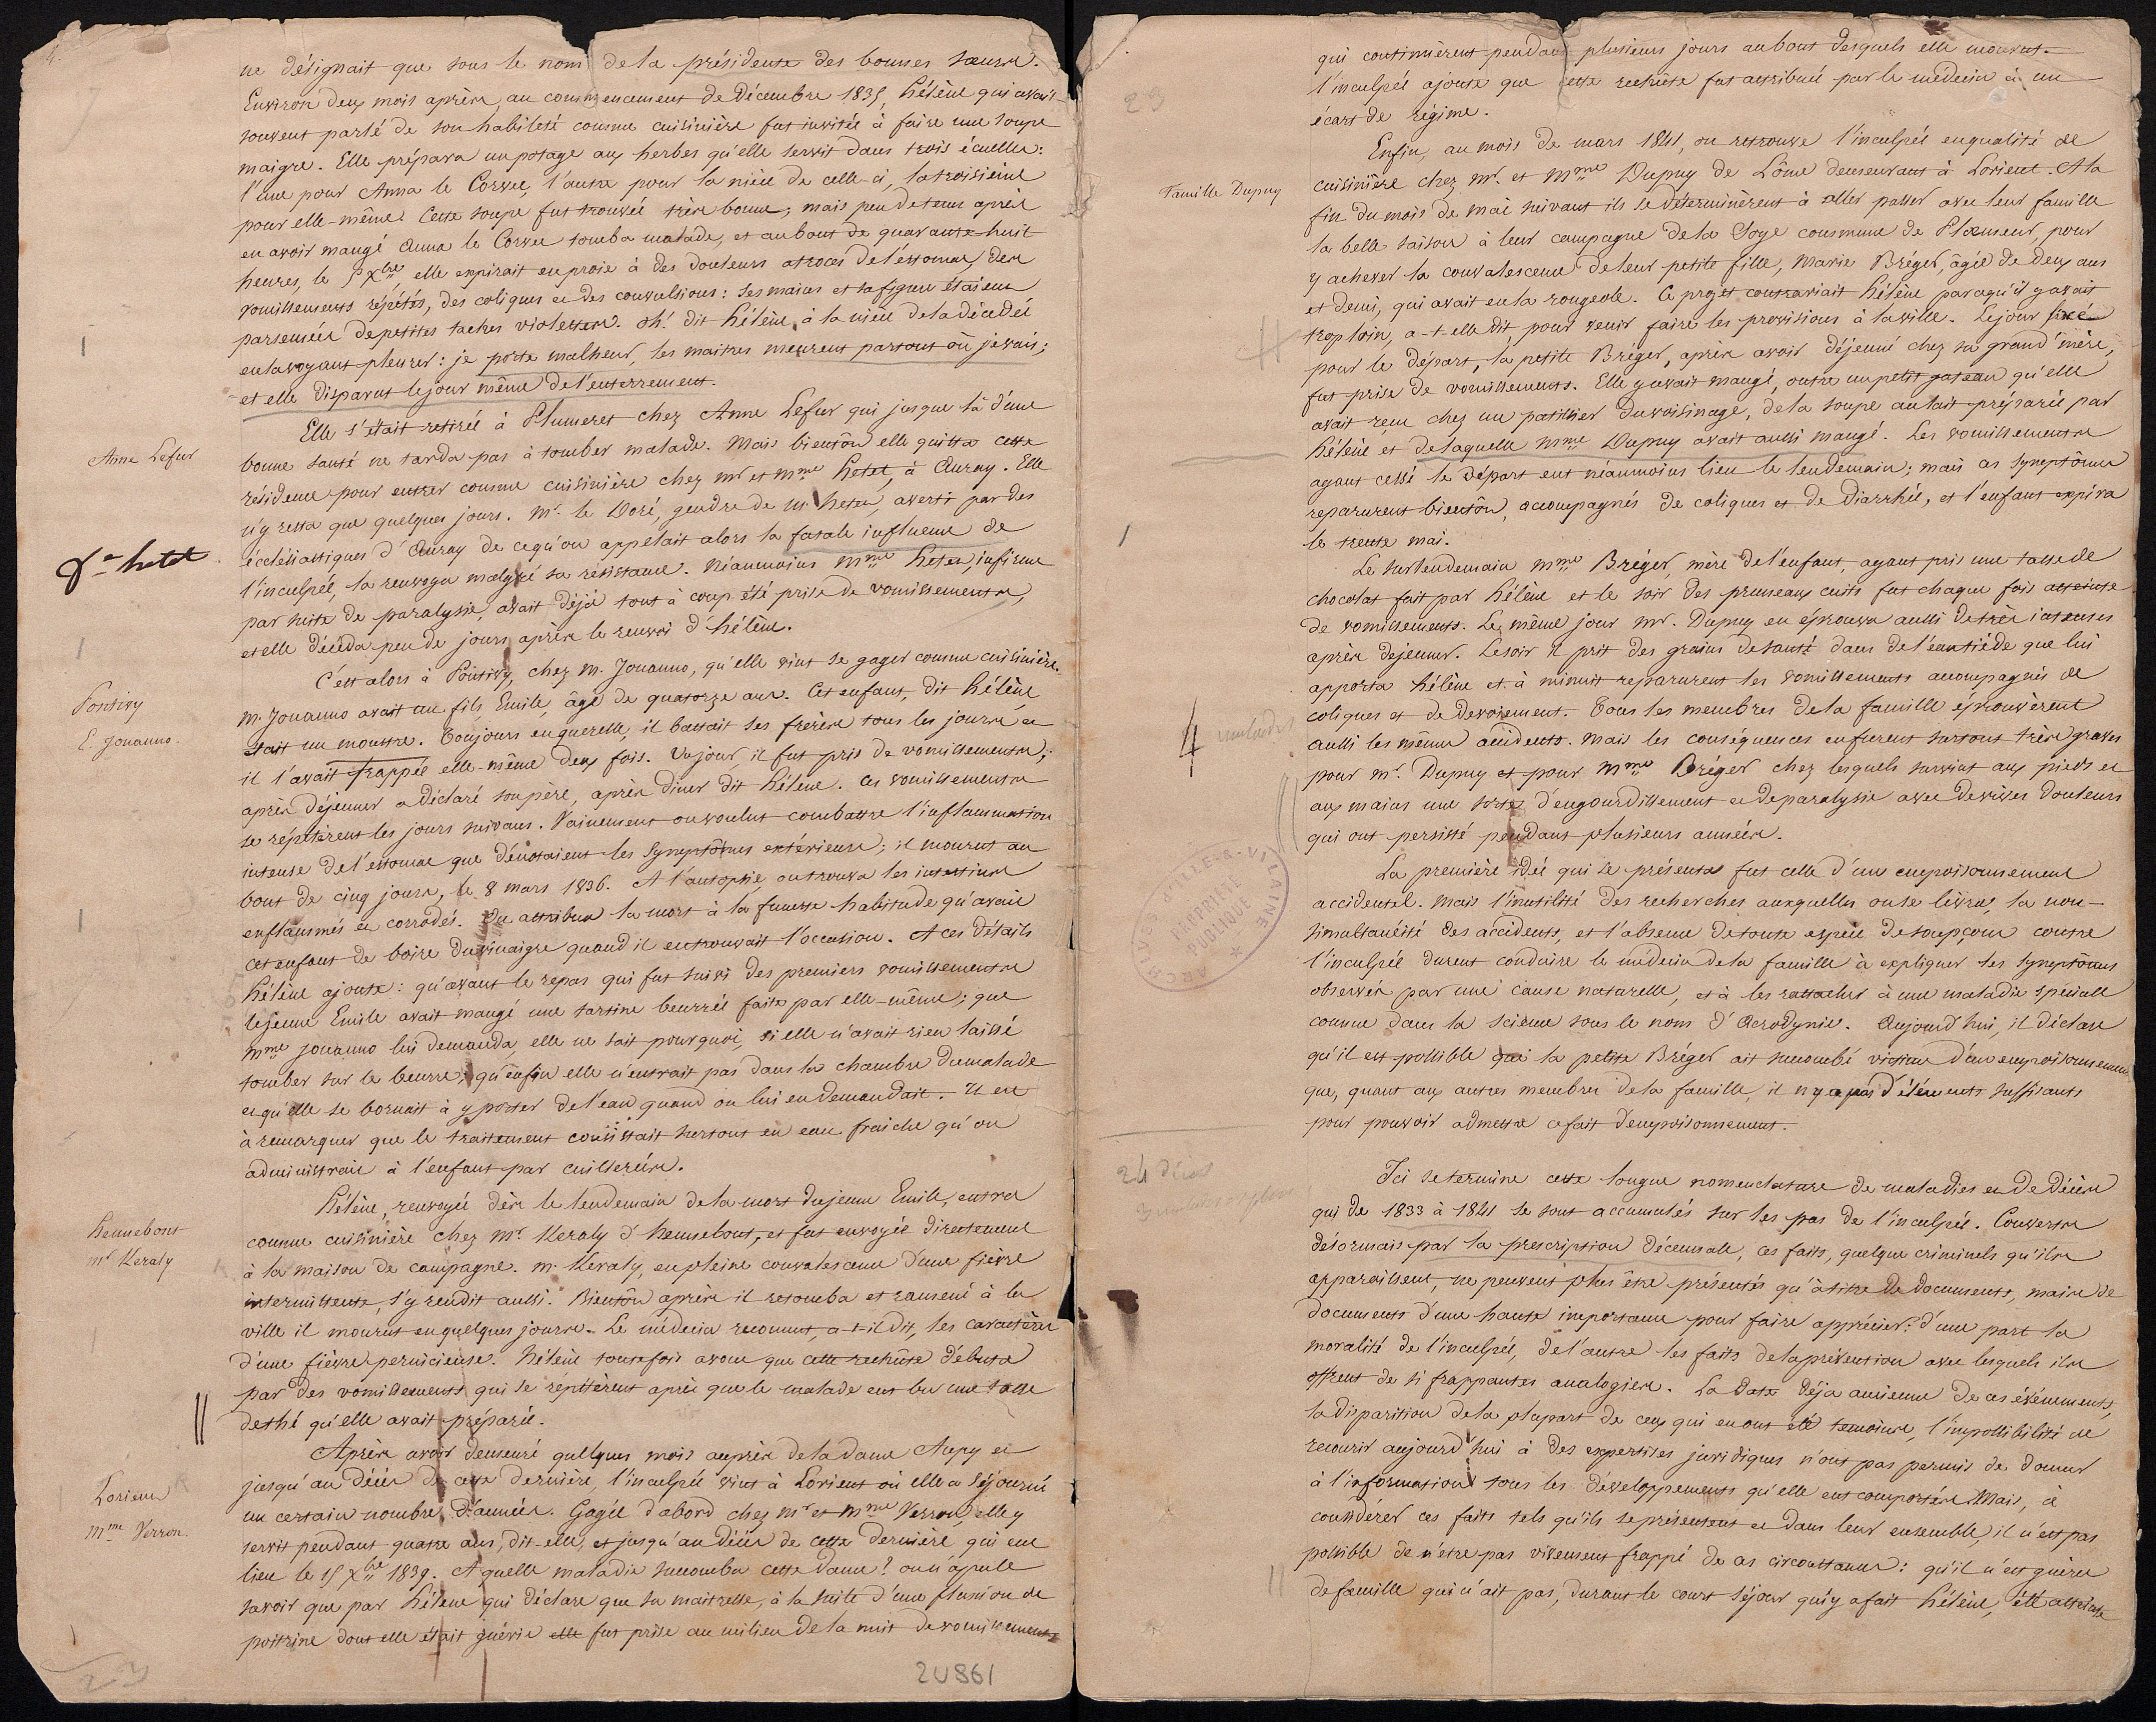 4.
ne désignait que sous le nom de la présidente des bonnes sœurs.
Environ deux mois après, au commencement de Décembre 1835, Hélène qui avait
souvent parlé de son habileté comme cuisinière fut invitée à faire une soupe
maigre. Elle prépara un potage aux herbes qu'elle servit dans trois écuelles:
l'une pour Anna le Corvec, l'autre pour la nièce de celle-ci, la troisième
pour elle-même. Cette soupe fut trouvée très bonne; mais peu de tems après
en avoir mangé Anna le Corvec tomba malade, et au bout de quarante-huit
heures, le 5 Xbre, elle expirait en proie à des douleurs atroces de l'estomac, des
vomissements répétés, des coliques et des convulsions: ses mains et sa figure étaient
parsemées de petites taches violettes. Ah! dit Hélène à la nièce de la décédée
en la voyant pleurer: je porte malheur, les maitres meurent partout où je vais;
et elle disparut le jour même de l'enterrement.
Anne Lefur
Elle s'était retirée à Plumeret chez Anne Lefur qui jusque là d'une
bonne santé ne tarda pas à tomber malade. Mais bientôt elle quitta cette
résidence pour entrer comme cuisinière chez mr et mme Hetel, à Auray. Elle
n'y resta que quelques jours. Mr. le Doré, gendre de m. Hetel, averti par des
écclésiastiques d'Auray de ce qu'on appelait alors la fatale influence de
Ve hetel
l'inculpée, la renvoya malgré sa résistance. Néanmoins mme Hetel, infirme
par suite de paralysie, avait déjà tout à coup été prise de vomissements,
et elle décéda peu de jours après le renvoi d'hélène.
Pontivy
E. Jouanno.
C'est alors à Pontivy, chez m. Jouanno, qu'elle vint se gager comme cuisinière.
M. Jouanno avait un fils, Emile, âgé de quatorze ans. Cet enfant, dit Hélène
était un monstre. Toujours en querelle, il battait ses frères tous les jours et
il l'avait frappée elle-même deux fois. Un jour, il fut pris de vomissements;
après déjeuner a déclaré son père, après diner dit Hélène. Ces vomissements
se répétèrent les jours suivans. Vainement on voulut combattre l'inflammation
intense de l'estomac que dénotaient les symptômes extérieurs; il mourut au
bout de cinq jours, le 8 mars 1836. A l'autopsie, on trouva les intestins
enflammés et corrodés. On attribua la mort à la funeste habitude qu'avait
cet enfant de boire du vinaigre quand il en trouvait l'occasion. A ces détails
Hélène ajoute: qu'avant le repas qui fut suivi des premiers vomissements
le jeune Emile avait mangé une tartine beurrée faite par elle-même; que
Mme jouanno lui demanda, elle ne sait pourquoi, si elle n'avait rien laissé
tomber sur le beurre; qu'enfin elle n'entrait pas dans la chambre du malade
et qu'elle se bornait à y porter de l'eau quand on lui en demandait. Il est
à remarquer que le traitement consistait surtout en eau fraiche qu'on
administrait à l'enfant par cuillerées.
Hennebont
mr Keraly
Hélène, renvoyée dès le lendemain de la mort du jeune Emile, entra
comme cuisinière chez Mr Keraly d'Hennebont, et fut envoyée directement
à la maison de campagne. M. Keraly, en pleine convalescence d'une fièvre
intermittente, s'y rendit aussi. Bientôt après il retomba et ramené à la
ville il mourut en quelques jours. Le médecin reconnut, a-t-il dit, les caractères
d'une fièvre pernicieuse. Hélène toutefois avoue que cette rechûte débuta
par des vomissements qui se répétèrent après que le malade eut bu une tasse
de thé qu'elle avait préparée.
Lorient
Mme Verron.
Après avoir demeuré quelques mois auprès de la dame Aupy et
jusqu'au décès de cette dernière, l'inculpée vint à Lorient où elle a séjourné
un certain nombre d'années. Gagée d'abord chez Mr et Mme Verron, elle y
servit pendant quatre ans, dit-elle, et jusqu'au décès de cette dernière qui eut
lieu le 15 Xbre 1839. A quelle maladie succomba cette dame? on n'a pu le
savoir que par Hélène qui déclare que sa maitresse, à la suite d'une fluxion de
poitrine dont elle était guérie elle fut prise au milieu de la nuit de vomissements
23
2U861
23
qui continuèrent pendant plusieurs jours au bout desquels elle mourut.
l'inculpée ajoute que cette rechûte fut attribuée par le médecin à un
écart de régime.
Famille Dupuy
Enfin, au mois de mars 1841, on retrouve l'inculpée en qualité de
cuisinière chez mr. et Mme Dupuy de Lôme demeurant à Lorient. A la
fin du mois de mai suivant ils se déterminèrent à aller passer avec leur famille
la belle saison à leur campagne de la Soye commune de Ploemeur, pour
y achever la convalescence de leur petite fille, Marie Bréger, âgée de deux ans
et demi, qui avait eu la rougeole. Ce projet contrariait Hélène parce qu'il y avait
trop loin, a-t-elle dit pour venir faire les provisions à la ville. Le jour fixé
pour le départ, la petite Bréger, après avoir déjeuné chez sa grand'mère,
fut prise de vomissements. Elle y avait mangé, outre un petit gateau qu'elle
avait reçu chez un patissier du voisinage, de la soupe au lait préparée par
Hélène et de laquelle Mme Dupuy avait aussi mangé. Les vomissements
ayant cessé le départ eut néanmoins lieu le lendemain; mais ces symptômes
reparurent bientôt, accompagnés de coliques et de diarrhée, et l'enfant expira
le trente mai.
Le surlendemain Mme Bréger, mère de l'enfant, ayant pris une tasse de
chocolat fait par Hélène et le soir des pruneaux cuits fut chaque fois atteinte
de vomissements. Le même jour Mr. Dupuy en éprouva aussi de très intenses
après déjeuner. Le soir il prit des grains de santé dans de l'eau tiède que lui
apporta Hélène et à minuit reparurent les vomissements accompagnés de
4 malades
coliques et de dévoiement. Tous les membres de la famille éprouvèrent
aussi les mêmes accidents. Mais les conséquences en furent surtout très graves
pour Mr. Dupuy et pour Mme Bréger chez lesquels survint aux pieds et
aux mains une sorte d'engourdissement et de paralysie avec de vives douleurs
qui ont persisté pendant plusieurs années.
ARCHIVES D'ILLE-&-VILAINE
PROPRIÉTÉ
PUBLIQUE
La première idée qui se présenta fut celle d'un empoisonnement
accidentel. Mais l'inutilité des recherches auxquelles on se livra, la non-
simultanéité des accidents, et l'absence de toute espèce de soupçons contre
l'inculpée durent conduire le médecin de la famille à expliquer les symptômes
observés par une cause naturelle, et à les rattacher à une maladie spéciale
connue dans la science sous le nom d'Acrodynie. Aujourd'hui, il déclare
qu'il est possible que la petite Bréger ait succombé victime d'un empoisonnement
que, quant aux autres membres de la famille, il n'y a pas d'éléments suffisants
pour pouvoir admettre ce fait d'empoisonnement.
24 décès
Ici se termine cette longue nomenclature de maladies et de décès
qui de 1833 à 1841 se sont accumulés sur les pas de l'inculpée. Couverts
désormais par la prescription décennale, ces faits, quelque criminels qu'ils
apparaissent, ne peuvent plus être présentés qu'à titre de documents, mais de
documents d'une haute importance pour faire apprécier: d'une part la
moralité de l'inculpée, de l'autre les faits de la prévention avec lesquels ils
offrent de si frappantes analogies. La date déja ancienne de ces événements,
la disparition de la plupart de ceux qui en ont été temoins, l'impossibilité de
recourir aujourd'hui à des expertises juridiques n'ont pas permis de donner
à l'information tous les développements qu'elle eut comportés. Mais, à
considérer ces faits tels qu'ils se présentent et dans leur ensemble, il n'est pas
possible de n'être pas vivement frappé de ces circonstances: qu'il n'est guères
de famille qui n'ait pas, durant le court séjour qu'y a fait Hélène, été atteinte